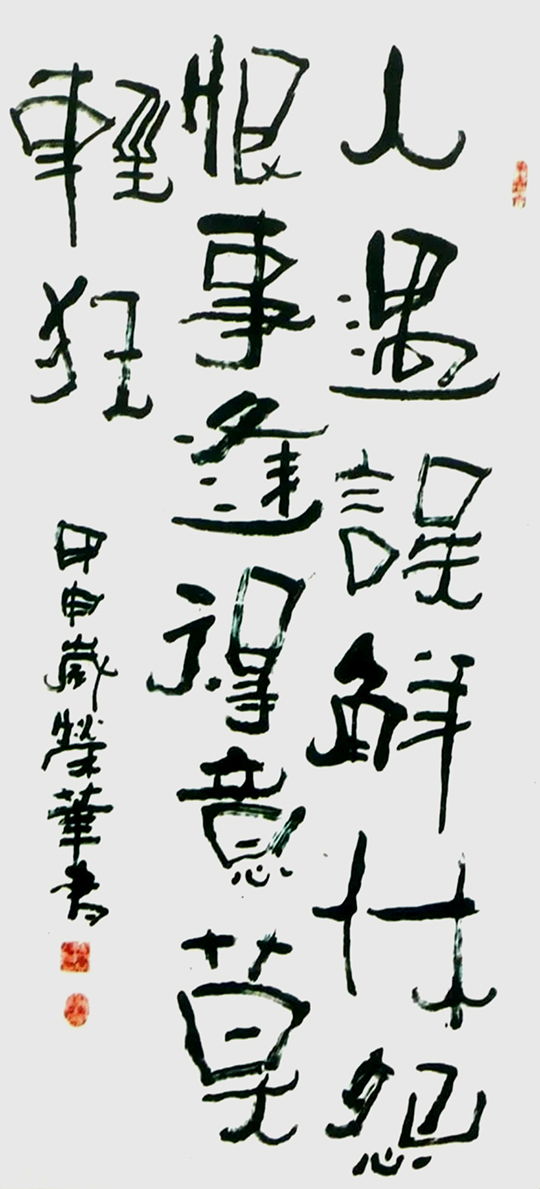 人遇誤解休怨
恨事逢得意莫
輕狂
甲申歲榮華書